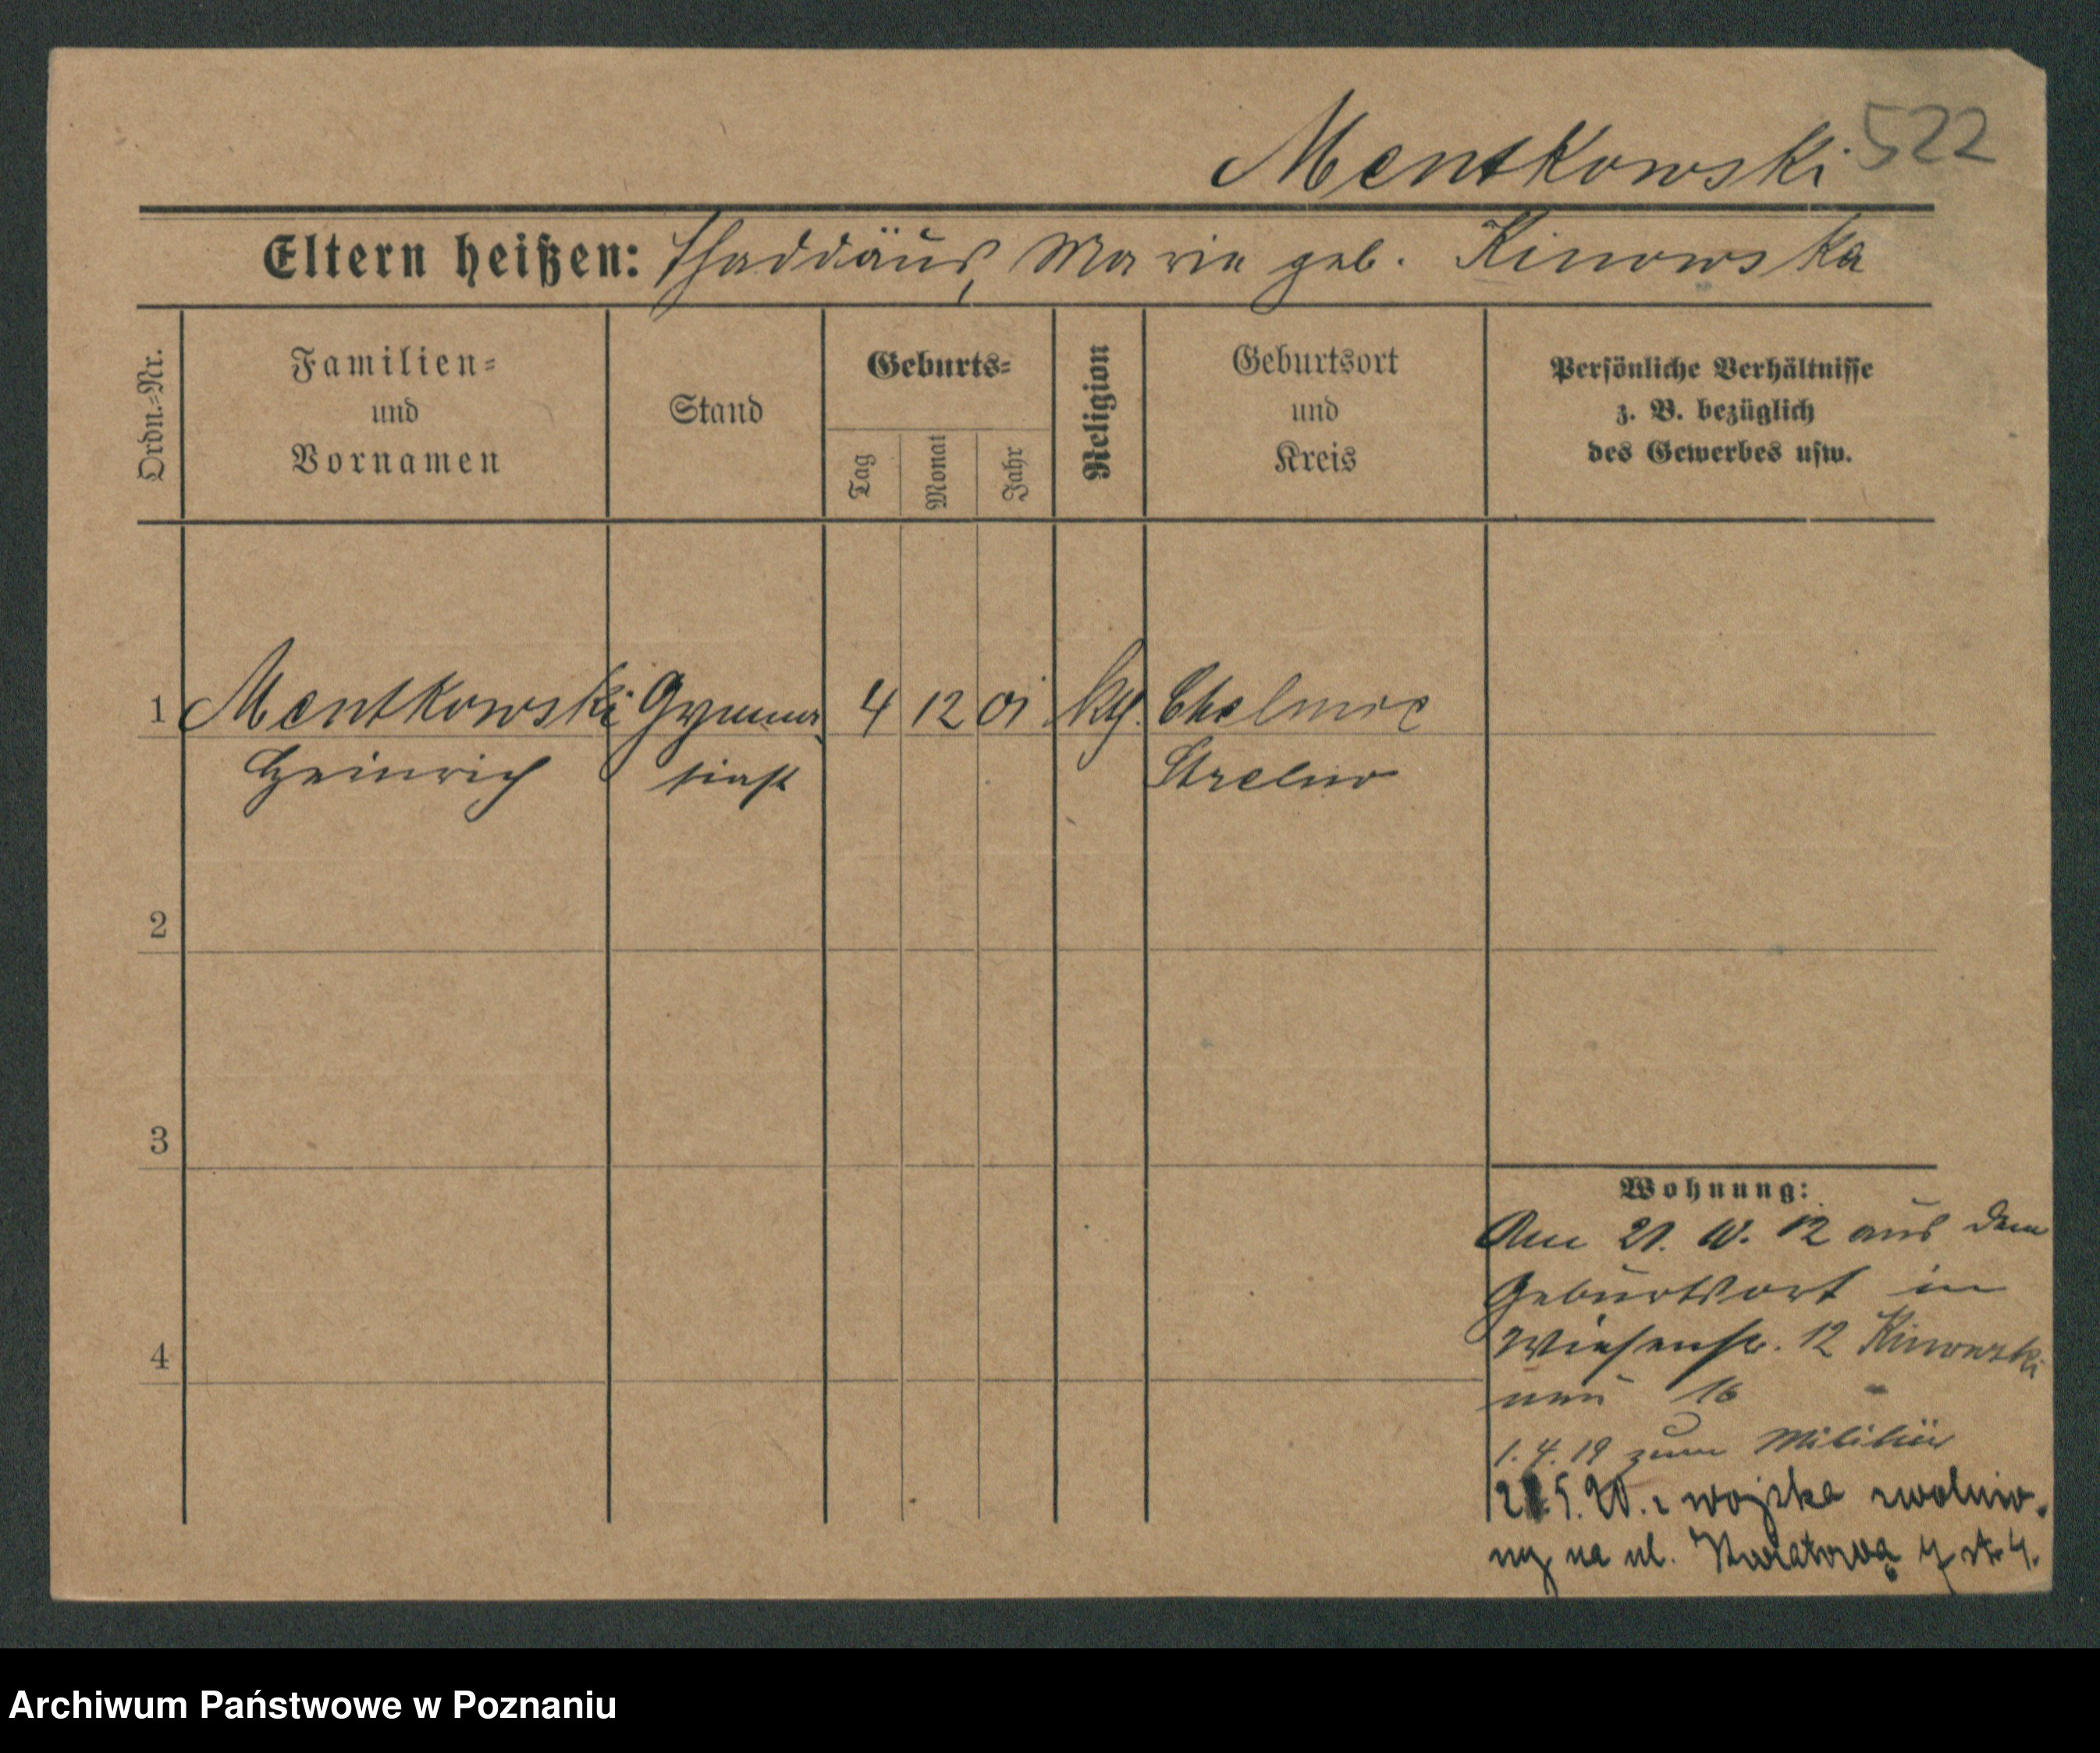 Mentkowski 522
Eltern heißen: Thaddäus, Marie geb. Kinowska
Ordn.=Nr.
Familien=
und
Vornamen
Stand
Geburts=
Tag
Monat
Jahr
Religion
Geburtsort
und
Kreis
Persönliche Verhältnisse
z. B. bezüglich
des Gewerbes usw.
1 Mentkowski Gymna 4 12 01 Chelmce
Heinrich siast Strelno
2
3
4
Wohnung:
Am 21. 12 aus dem
Geburtsort in
Wiesenstr. 12 Kinowski
neu 16
1.4.19 zum Militär
5.20. z wojska zwolnio-
ny na ul. Kwiatową
Archiwum Państwowe w Poznaniu